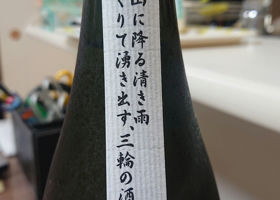 山に降る清き雨
くりて湧き出す、三輪の酒